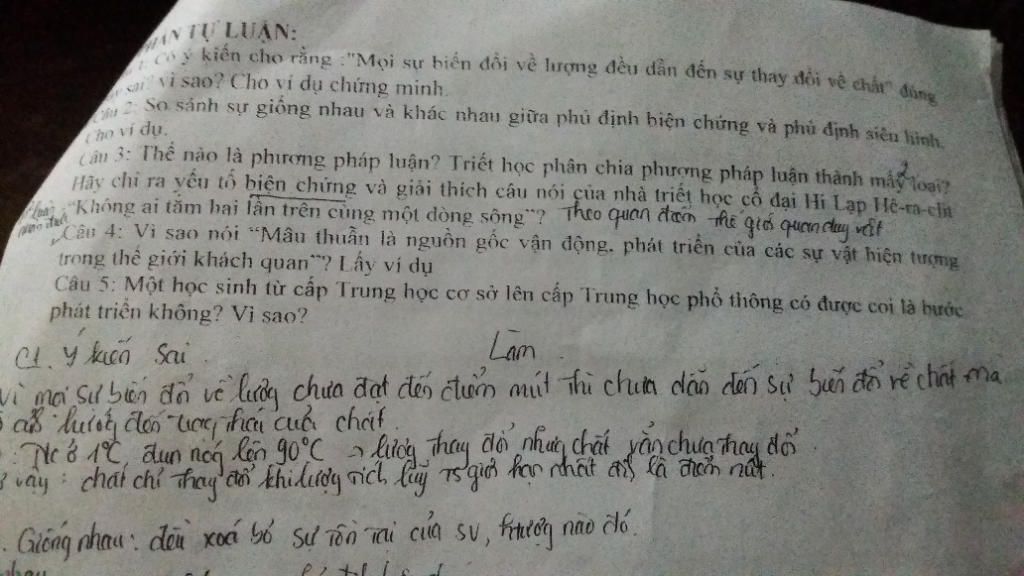 PHẦN TỰ LUẬN:
Có ý kiến cho rằng :"Mọi sự biến đổi về lượng đều dẫn đến sự thay đổi về chất" đúng
hay sai? vì sao? Cho ví dụ chứng minh.
Câu 2: So sánh sự giống nhau và khác nhau giữa phủ định biện chứng và phủ định siêu hình.
Cho ví dụ.
Câu 3: Thế nào là phương pháp luận? Triết học phân chia phương pháp luận thành mấy loại?
Hãy chỉ ra yếu tố biện chứng và giải thích câu nói của nhà triết học cổ đại Hi Lạp Hê-ra-clit
"Không ai tắm hai lần trên cùng một dòng sông"? Theo quan điểm thế giới quan duy vật
Câu 4: Vì sao nói "Mâu thuẫn là nguồn gốc vận động, phát triển của các sự vật hiện tượng
trong thế giới khách quan"? Lấy ví dụ
Câu 5: Một học sinh từ cấp Trung học cơ sở lên cấp Trung học phổ thông có được coi là bước
phát triển không? Vì sao?
Làm
C1. Ý kiến sai.
Vì mọi sự biến đổi về lượng chưa đạt đến điểm nút thì chưa dẫn đến sự biến đổi về chất mà
lượng đến trạng thái của chất.
ở 1°C đun nóng lên 90°C → lượng thay đổi nhưng chất vẫn chưa thay đổi.
vậy: chất chỉ thay đổi khi lượng tích luỹ tới giới hạn nhất là điểm nút.
Giống nhau: đều xoá bỏ sự tồn tại của sv, htượng nào đó.